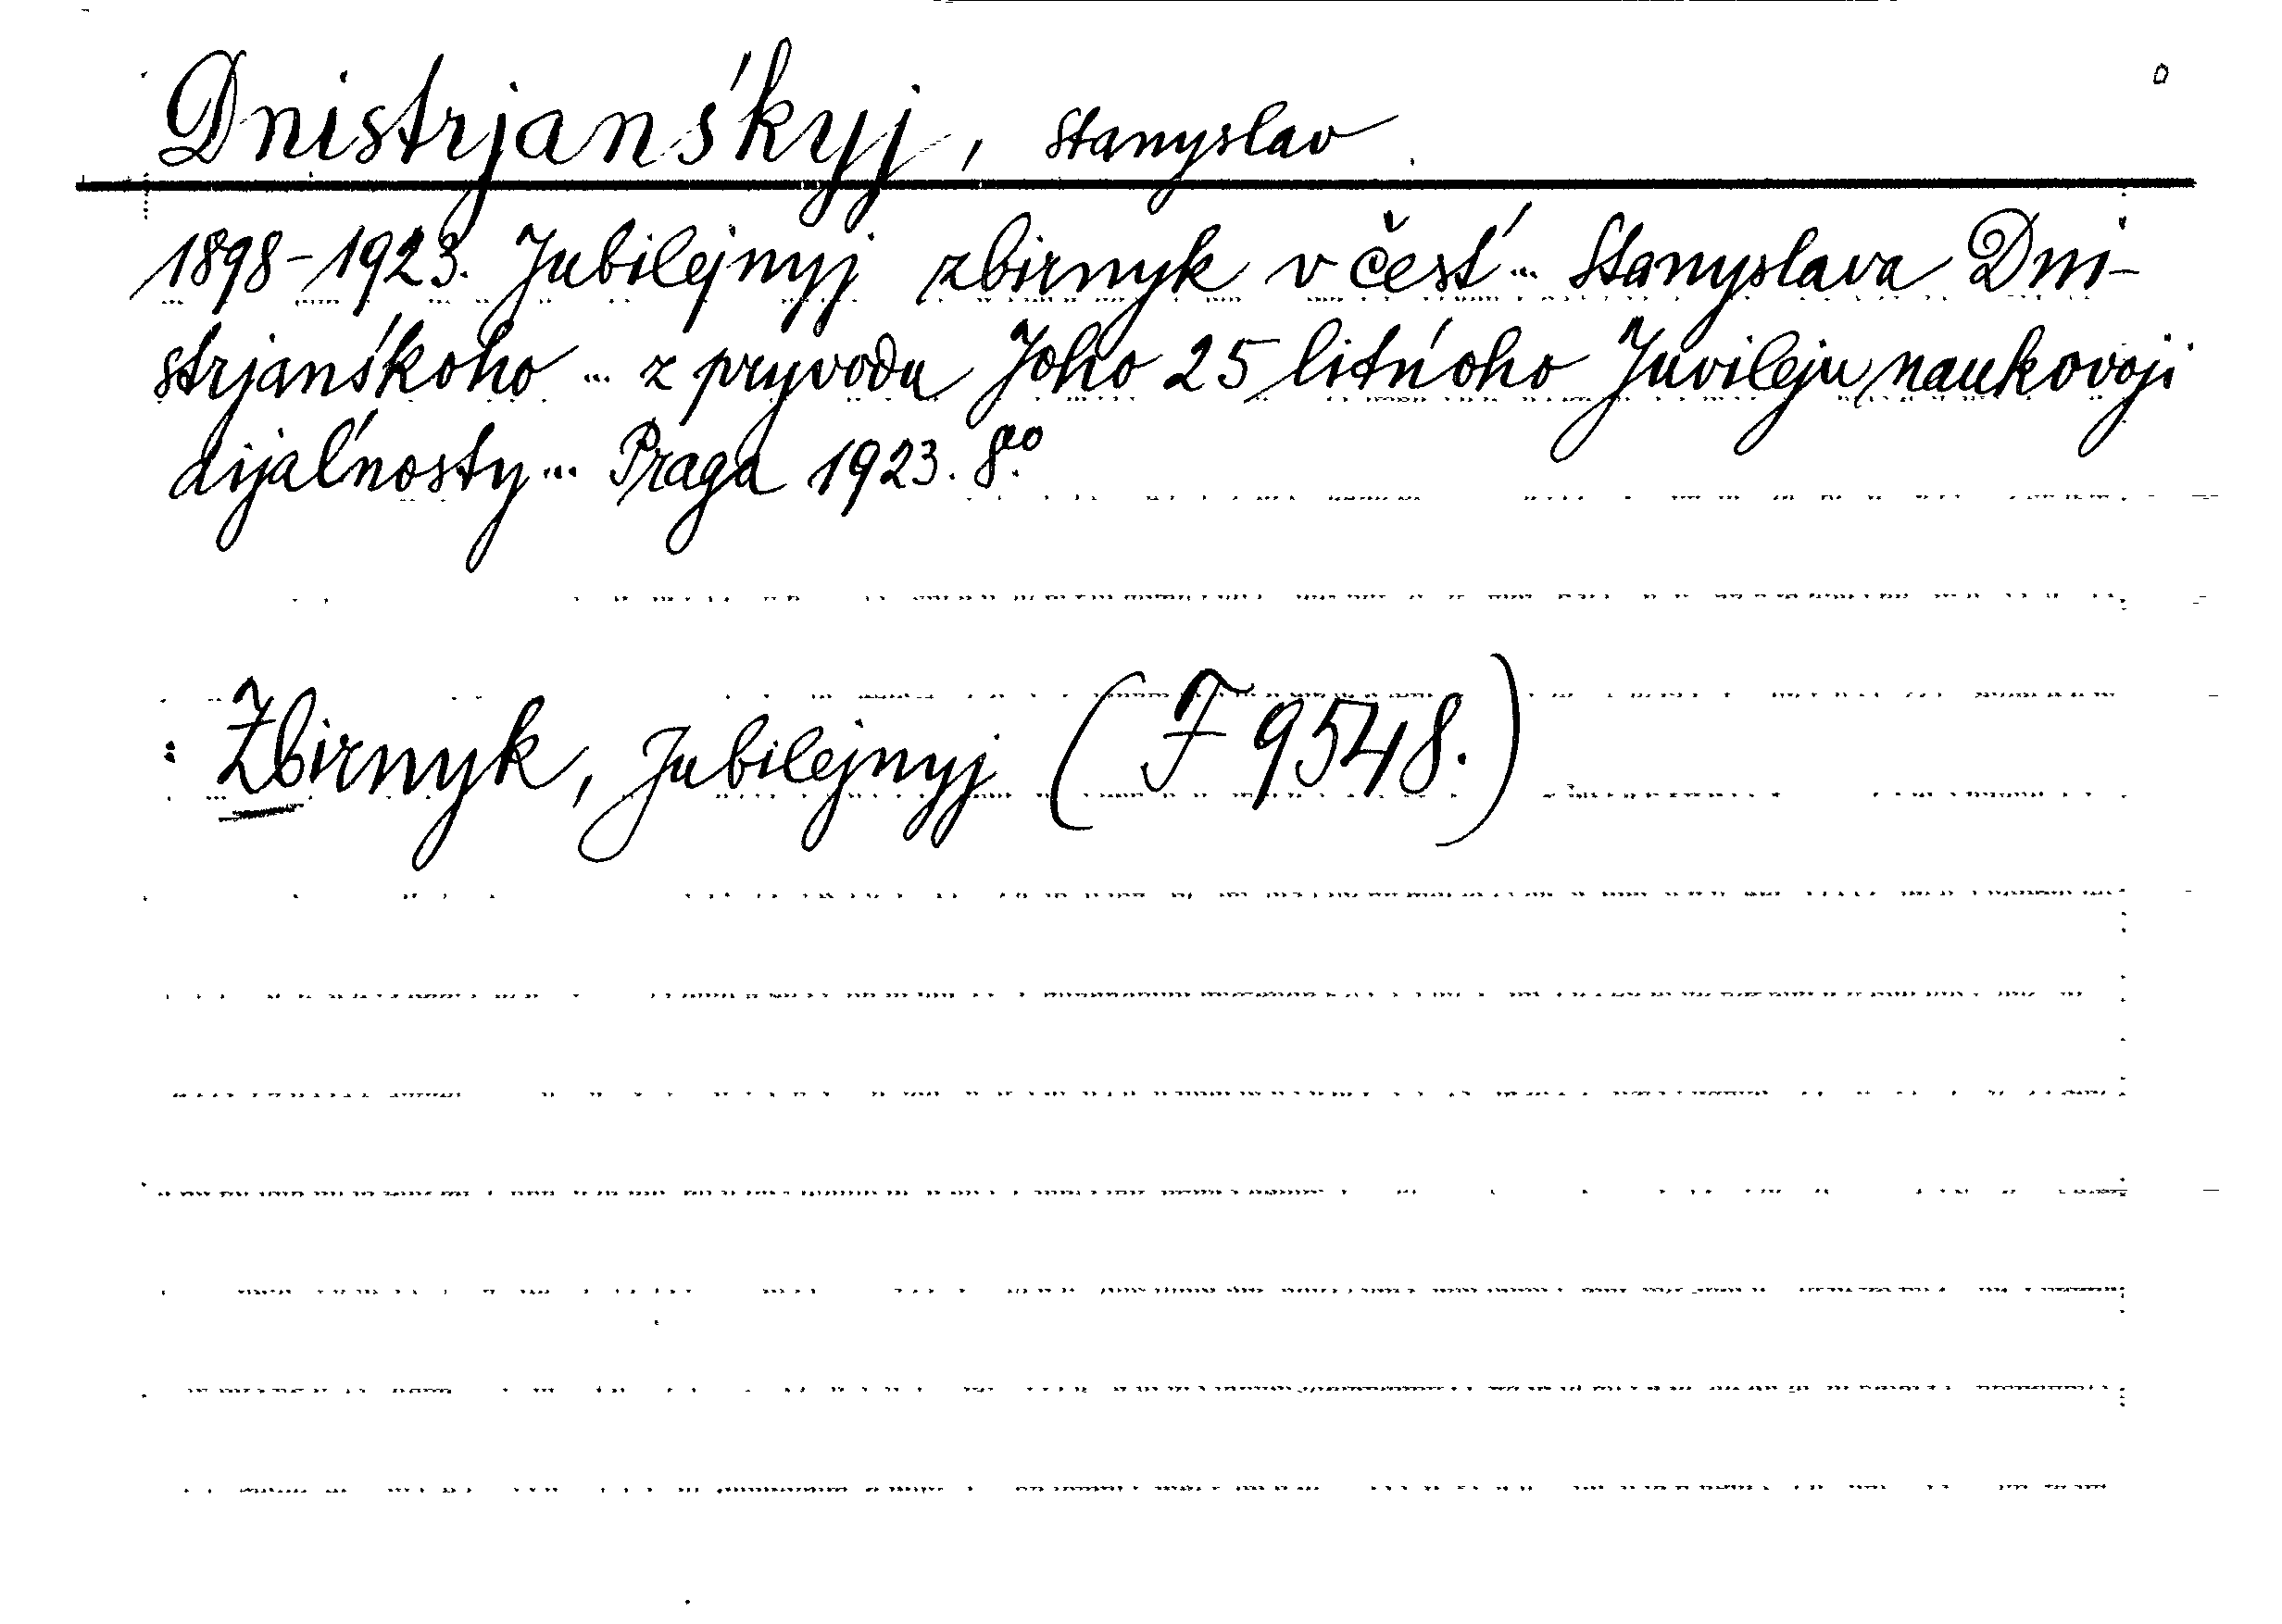 Dnistrjanśkyj, Stanyslav
1898-1923. Jubilejnyj zbirnyk v čest́ ... Stanyslava Dni-
strjanśkoho ... z pryvodu Joho 25 litńoho Juvileju naukovoji
dijaĺnosty ... Praga 1923. 8vo.
: Zbirnyk, Jubilejnyj (F 9548.)